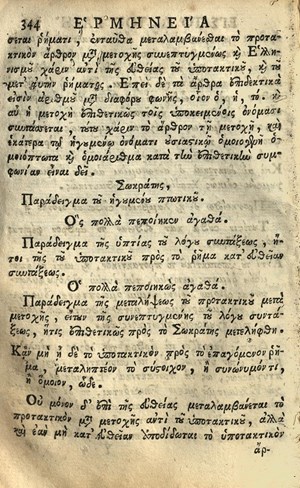 344 ΕΡΜΗΝΕΙΑ
σεται ῥήματι, ἐνταῦθα μεταλαμβάνεσθαι τὸ προτα-
κτικὸν ἄρθρον μζ̀ μετοχῆς συνεπτυγμένως κ̀ Ἑλλη-
νισμοῦ χάριν ἀντὶ τῆς εὐθείας τοῦ ὑποτακτικοῦ, κ̀ τοῦ
μετ' αὐτὴν ῥήματος. Ἐπεὶ δὲ τὰ ἄρθρα ἐπιδεκτικά
εἰσιν ἀριθμοῦ μζ̀ διαφόρου φωνῆς, οἷον ὁ, ἡ, τό. κ̀
αὖ ἡ μετοχὴ ἐπιθετικῶς τοῖς ὑποκειμένοις ὀνόμασι
συντάσσεται, τούτου χάριν τὸ ἄρθρον τῇ μετοχῇ, καὶ
ἑκάτερα τῷ ἡγουμένῳ ὀνόματι οὐσιαστικῷ ὁμοιογενῆ
ὁμοιόπτωτα κ̀ ὁμοιάριθμα κατὰ τὴν ἐπιθετικὴν συμ-
φωνίαν εἶναι δεῖ.
Σωκράτης,
Παράδειγμα τοῦ ἡγουμένου πτωτικοῦ.
Ὃς πολλὰ πεποίηκεν ἀγαθά.
Παράδειγμα τῆς ὑπτίας τοῦ λόγου συντάξεως, ἤ-
τοι τῆς τοῦ ὑποτακτικοῦ πρὸς τὸ ῥῆμα κατ' εὐθεῖαν
συντάξεως.
Ὁ πολλὰ πεποιηκὼς ἀγαθά.
Παράδειγμα τῆς μεταλήψεως τοῦ προτακτικοῦ μετὰ
μετοχῆς, εἴτουν τῆς συνεπτυγμένης τοῦ λόγου συντά-
ξεως, ἥτις ἐπιθετικῶς πρὸς τὸ Σωκράτης μετελήφθη.
Κἂν μὴ ᾖ δὲ τὸ ὑποτακτικὸν πρὸς τὸ ἐπαγόμενον ῥῆ-
μα, μεταληπτέον τὸ σύστοιχον, ἢ συνωνυμόντι,
ἢ ὅμοιον, ὧδε.
Οὐ μόνον δ' ἐπὶ τῆς εὐθείας μεταλαμβάνεται τὸ
προτακτικὸν μζ̀ μετοχῆς ἀντὶ τοῦ ὑποτακτικοῦ, ἀλλὰ
καὶ ἐὰν μὴ κατ' εὐθεῖαν ἀποδίδωται τὸ ὑποτακτικὸν
ἄρ-